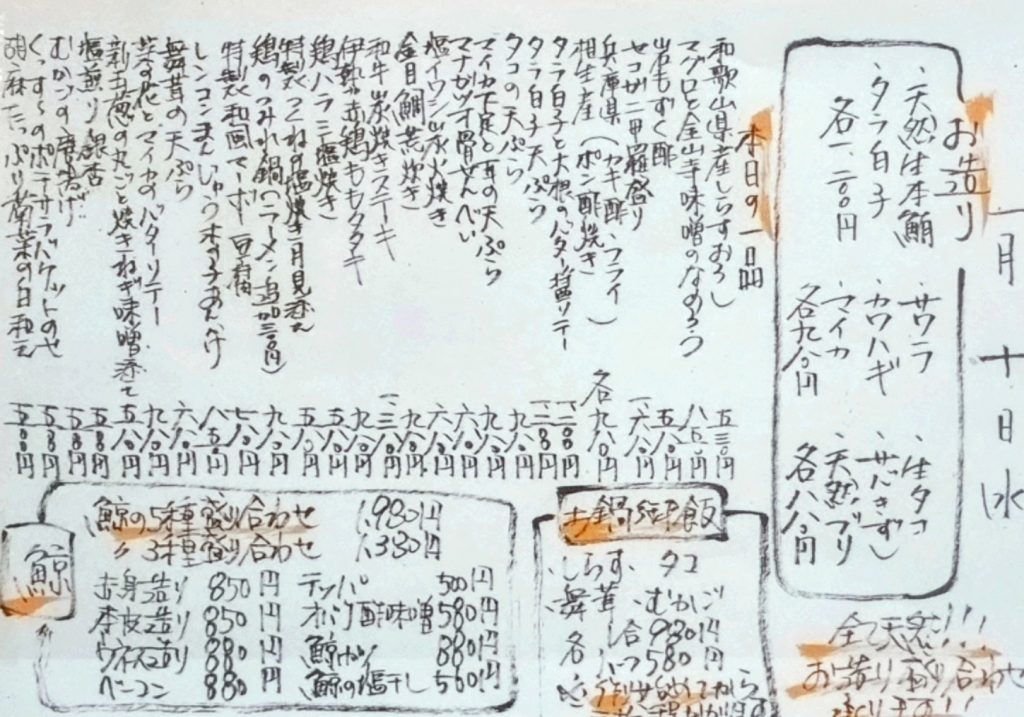 一月十日水
お造り
・天然生本鮪
・タラ白子
各一、二〇〇円
・サワラ
・カワハギ
・マイカ
各九八〇円
・生タコ
・サヨリ(きずし)
・天然ブリ
各八八〇円
全て天然!!!
お造り盛り合わせ
承ります!!
本日の一品
和歌山県産しらすおろし 五三〇円
マグロと金山寺味噌のなめろう 八五〇円
岩もずく酢 五八〇円
セコガニ甲羅盛り 一、六八〇円
兵庫県 相生産 (カキ酢・フライ ポン酢焼き) 各九八〇円
タラ白子と大根のバター醤油ソテー 一、二〇〇円
タラ白子天ぷら 一、二〇〇円
タコの天ぷら 九八〇円
マイカ下足と耳の天ぷら 九八〇円
マナガツオ骨せんべい 六八〇円
塩イワシ氷火焼き 六八〇円
金目鯛荒炊き 九八〇円
和牛炭焼きステーキ 一、三八〇円
伊勢赤鶏ももタタキ 九八〇円
鶏ハラミ塩焼き 五八〇円
特製つくねの塩焼き月見添え 五八〇円
鶏のつみれ小鍋(ラーメン追加三〇〇円) 九八〇円
特製和風マーボー豆腐 七八〇円
レンコンまんじゅう木の子あんかけ 八五〇円
舞茸の天ぷら 六八〇円
菜の花とマイカのバターソテー 九八〇円
新玉葱の丸ごと焼きねぎ味噌添え 五八〇円
塩煎り銀杏 五八〇円
むかごの唐揚げ 五八〇円
くっすーのポテサラバケットのせ 五八〇円
胡麻たっぷり青菜の白和え 五八〇円
お鍋御飯
・しらす・タコ
・舞茸・むかご
各一合930円
ハーフ580円
鯨
鯨の5種盛り合わせ 1,980円
〃 3種盛り合わせ 1,380円
赤身造り 850円
本皮造り 850円
ウネス造り 880円
ベーコン 880円
テッパ 500円
オバケ酢味噌 580円
鯨カツ 880円
鯨の塩干し 500円